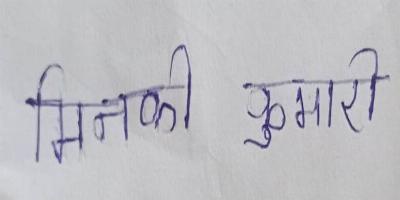 मिनकी कुमारी